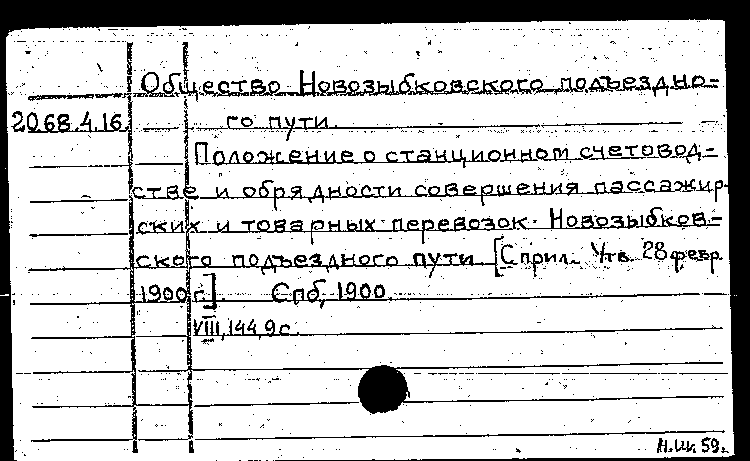 Общество Новозыбковского подъездно-
2068.4.16. го пути.
Положение о станционном счетовод-
стве и обрядности совершения пассажир-
ских и товарных перевозок Новозыбков-
ского подъездного пути [С прил. Утв. 28 февр.
1900 г.]. Спб, 1900.
VIII, 144, 9 с.
Н.Ш. 59.